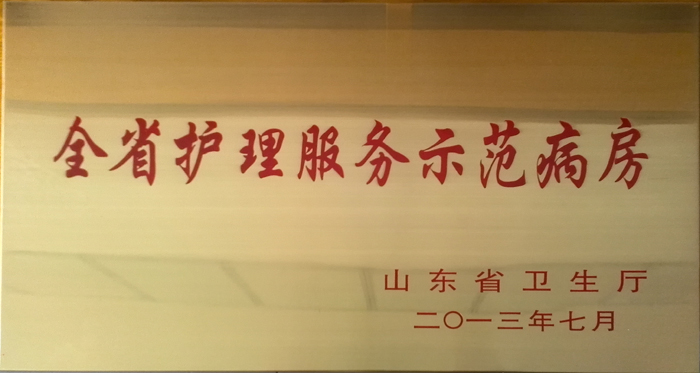 全省护理服务示范病房
山东省卫生厅
二〇一三年七月